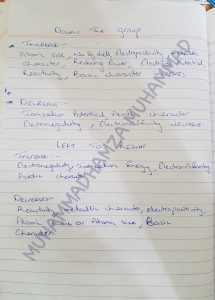 Down The Group
* Increase:-
Atomic size, No of shell, Electropositivity, Metallic
character, Reducing Power, Electrode Potential
Reactivity, Basic character increases
* Decrease:-
Ionization Potential, Acidic character
Electronegativity, Electron affinity decrease.
Left To Right
Increase:-
Electronegativity, Ionization Energy, Electron Affinity
Acidic character
Decrease:-
Reactivity, metallic character, electropositivity,
Atomic radius or Atomic size, Basic
Character
MUHAMMAD HAMZA MUHAMMAD